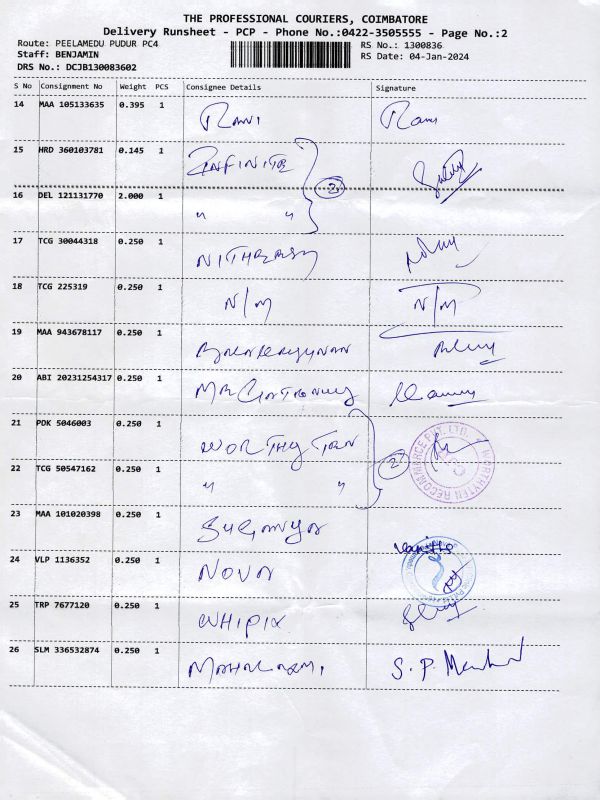 THE PROFESSIONAL COURIERS, COIMBATORE
Delivery Runsheet - PCP - Phone No.:0422-3505555 - Page No.:2
Route: PEELAMEDU PUDUR PC4
Staff: BENJAMIN
DRS No.: DCJB130083602
RS No.: 1300836
RS Date: 04-Jan-2024
S No Consignment No Weight PCS Consignee Details Signature
14 MAA 105133635 0.395 1 RAVI Ravi
15 HRD 360103781 0.145 1 INFINITE
2
16 DEL 121131770 2.000 1 " "
17 TCG 30044318 0.250 1
18 TCG 225319 0.250 1 N/M N/M
19 MAA 943678117 0.250 1
20 ABI 20231254317 0.250 1
21 PDK 5046003 0.250 1 WORTHYTEN
2
WORTHYTEN RECOMMERCE PVT. LTD.
22 TCG 50547162 0.250 1 " "
23 MAA 101020398 0.250 1 Suganya
24 VLP 1136352 0.250 1 NOVA
25 TRP 7677120 0.250 1 WHIPIX
26 SLM 336532874 0.250 1 S.P.